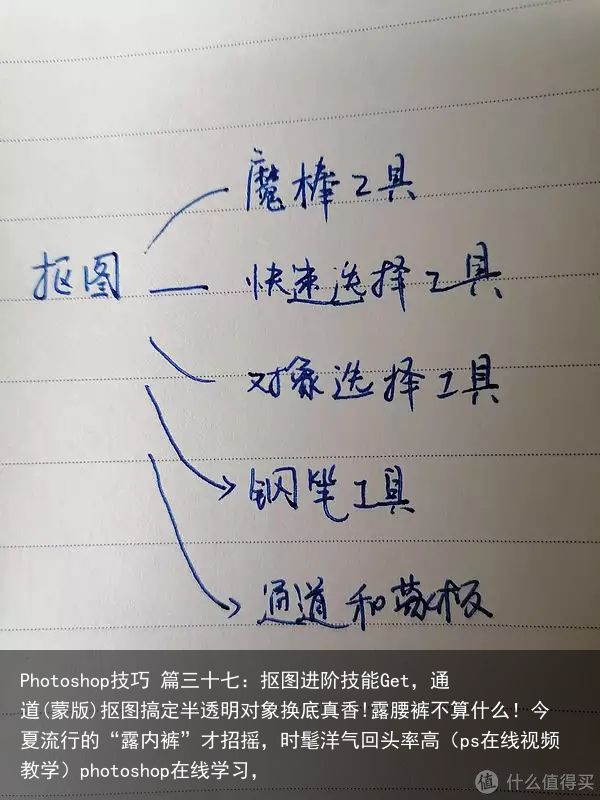 魔棒工具
抠图
快速选择工具
对象选择工具
钢笔工具
通道和蒙板
Photoshop技巧 篇三十七：抠图进阶技能Get，通
道(蒙版)抠图搞定半透明对象换底真香!露腰裤不算什么！今
夏流行的“露内裤”才招摇，时髦洋气回头率高（ps在线视频
教学）photoshop在线学习，
值 什么值得买